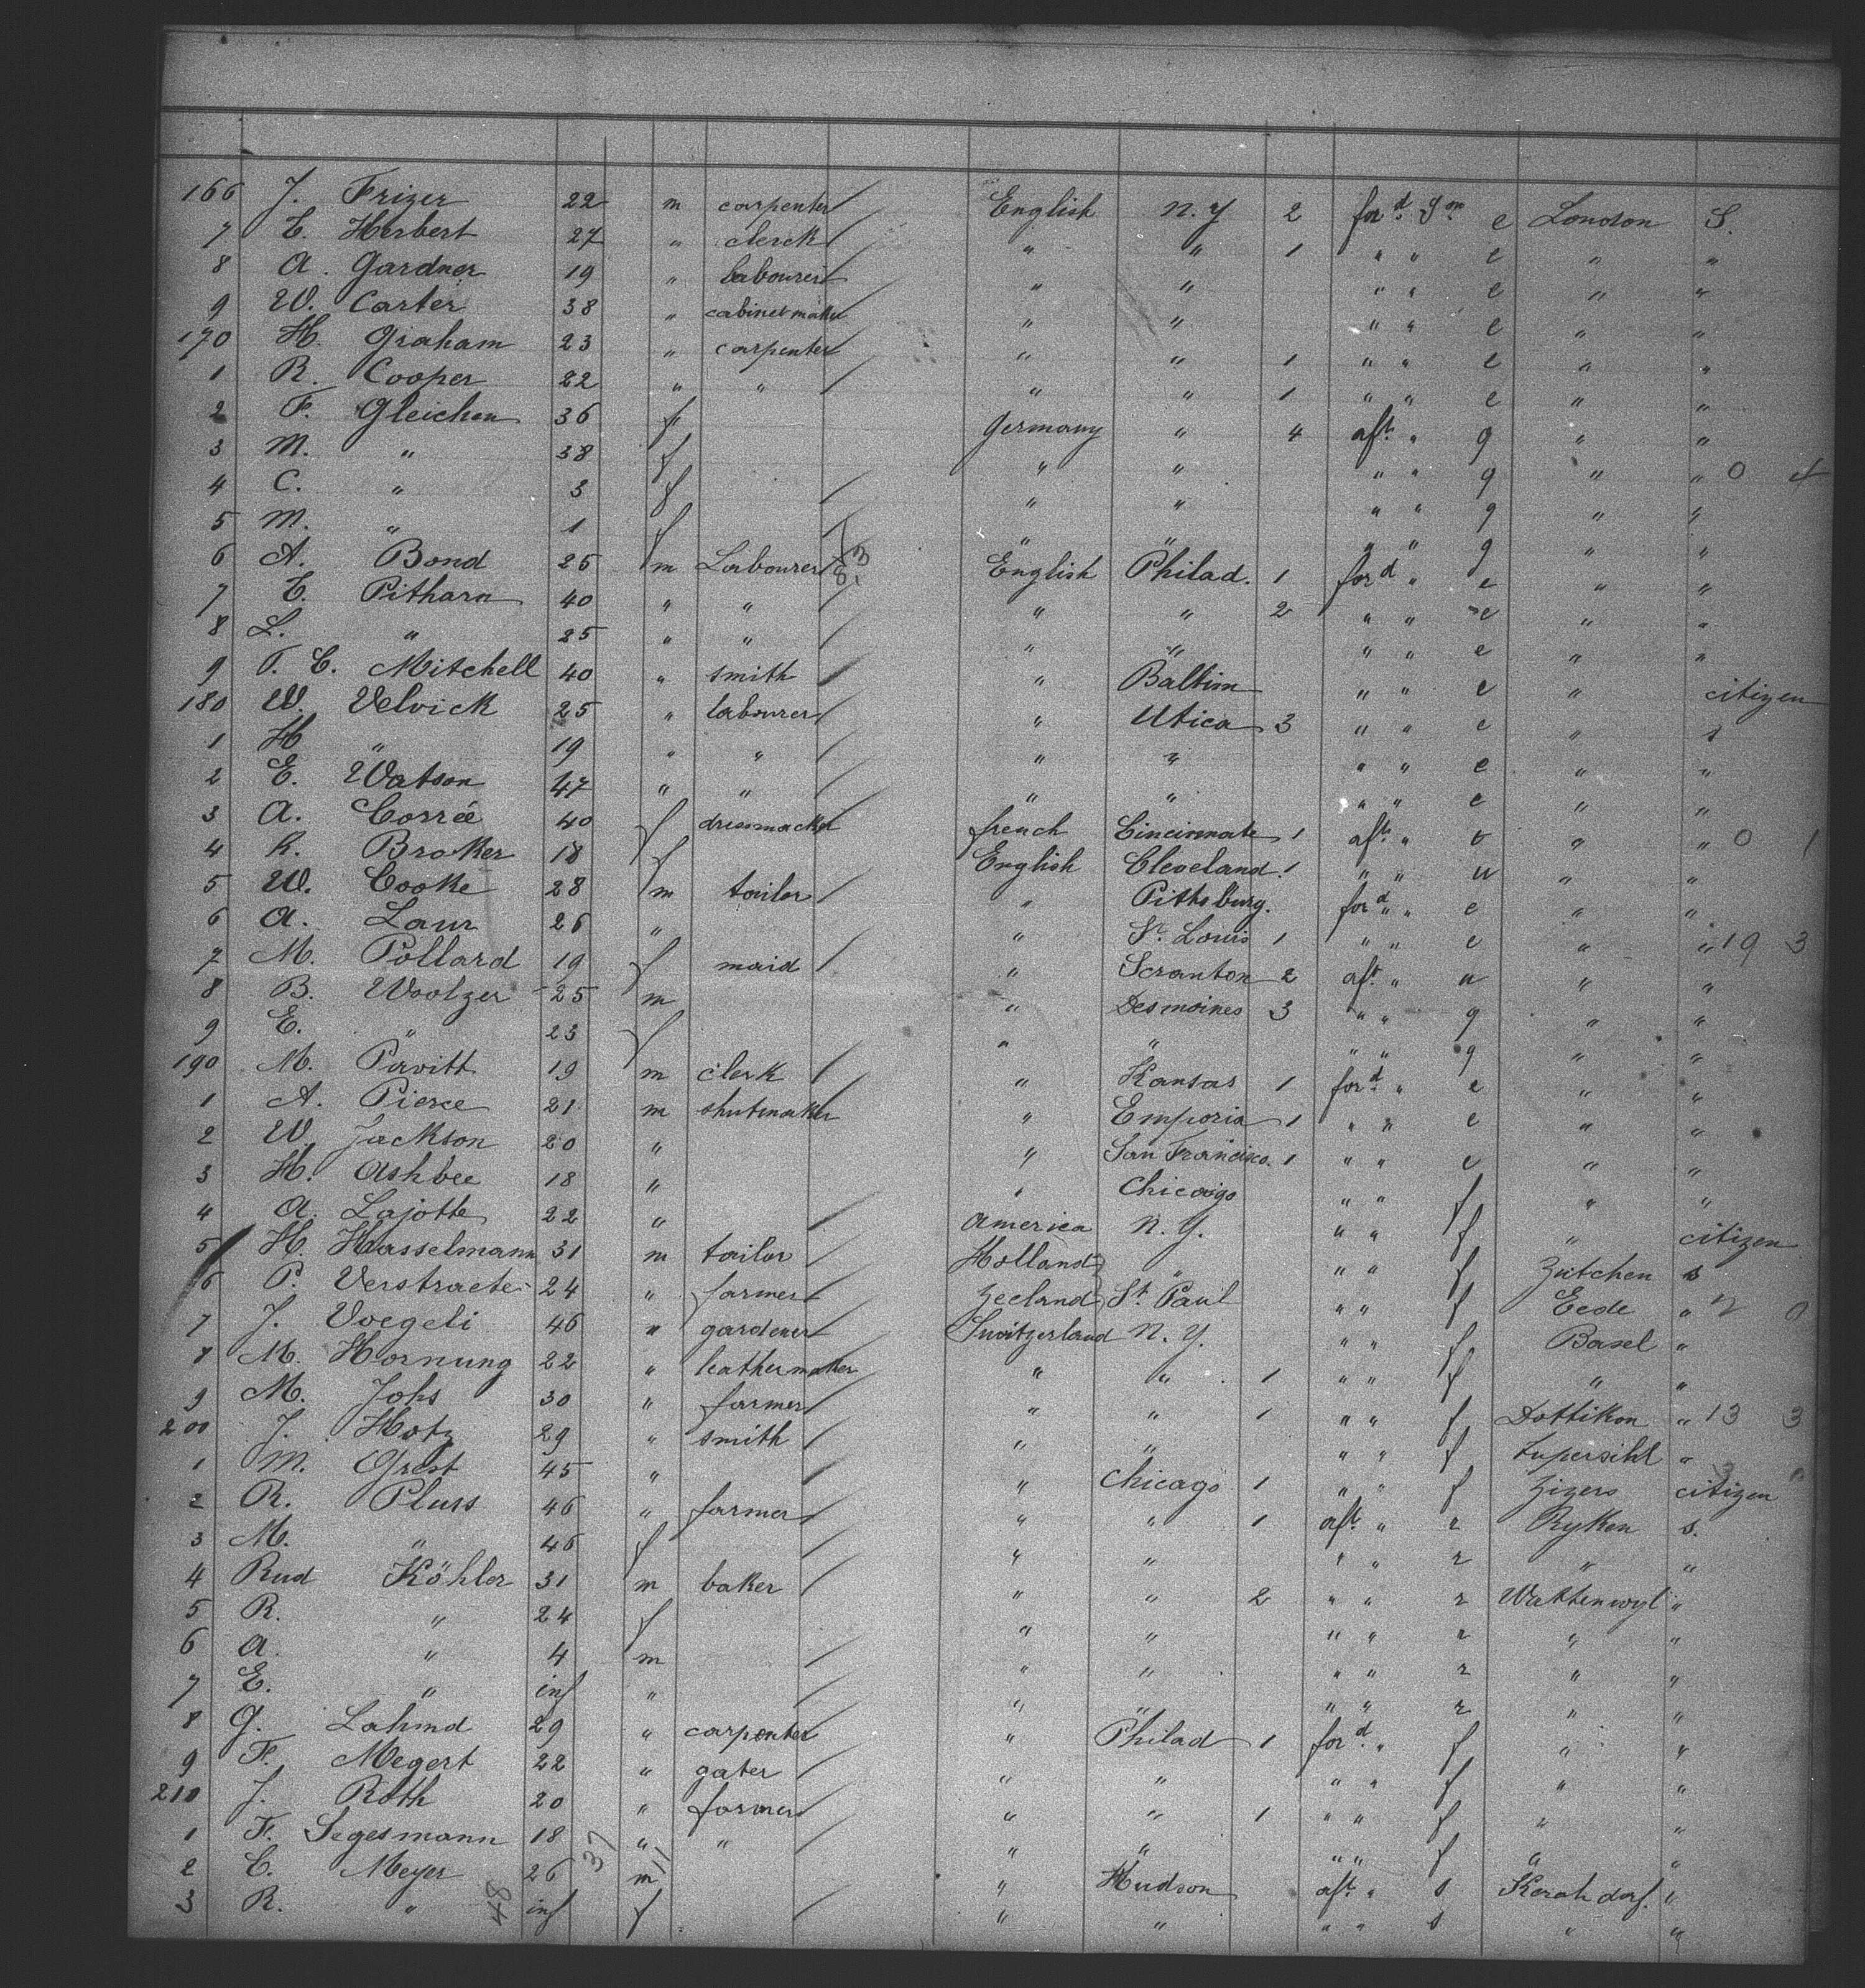 166 J. Frizer 22 m carpenter English N.Y 2 for.d G.m e London S.
7 E. Herbert 27 " clerck " " 1 " " e " "
8 A. Gardner 19 " labourer " " " " e " "
9 W. Carter 38 " cabinet maker " " " " e " "
170 H. Graham 23 " carpenter " " 1 " " e " "
1 R. Cooper 22 " " " " 1 " " e " "
2 F. Gleichen 36 f Germany " 4 aft. " g " "
3 M. " 38 f " " " " g " " 0 4
4 C. " 3 f " " " " g " "
5 M. " 1 f " " " " g " "
6 A. Bond 25 m Labourer English Philad. 1 for.d " e " "
7 E. Pitharn 40 " " " " 2 " " e " "
8 L. " 25 " " " " " " e " "
9 T. C. Mitchell 40 " smith " Baltim " " e " citizen
180 W. Velvick 25 " labourer " Utica 3 " " e " s
1 H " 19 " " " " " " e " "
2 E. Watson 47 " " " " " " e " "
3 A. Corrée 40 f dressmacker french Cincinnate 1 aft. " v " " 0 1
4 K. Broker 18 f English Cleveland. 1 " " u " "
5 W. Cooke 28 m tailor " Pittsburg. for.d " e " "
6 A. Laur 26 " " St. Louis 1 " " e " " 19 3
7 M. Pollard 19 f maid " Scranton 2 aft. " u " "
8 B. Woolzer 25 m " Desmoines 3 " " g " "
9 E. " 23 f " " " " g " "
190 M. Pavitt 19 m clerk " Kansas 1 for.d " e " "
1 A. Pierce 21 m shutmaker " Emporia 1 " " e " "
2 W. Jackson 20 " " San Francisco. 1 " " e " "
3 H. Ashbee 18 " " Chicago " " f " "
4 A. Lajotte 22 " America N.Y. " " f " citizen
5 H. Hasselmann 31 m tailor Holland " " " f Zutchen s
6 P. Verstraete 24 " farmer Zeeland St. Paul " " f Eede " 2 0
7 J. Voegeli 46 " gardener Switzerland N.Y. " " f Basel "
8 M. Hornung 22 " leathermaker " " 1 " " f " "
9 M. Johs 30 " farmer " " 1 " " f Dottikon " 13 3
200 J. Hotz 29 " smith " " " " f Lupersihl "
1 M. Grest 45 " " Chicago 1 " " f Zizers citizen
2 R. Pluss 46 " farmer " " 1 aft. " r Ryken s.
3 M. " 46 f " " " " r " "
4 Rud Köhler 31 m baker " " 2 " " r Wattenwyl "
5 R. " 24 f " " " " r " "
6 A. " 4 m " " " " r " "
7 E. " inf " " " " " r " "
8 G. Lahmd 29 " carpenter " Philad 1 for.d " f " "
9 F. Megert 22 " gater " " " " f " "
210 J. Roth 20 " farmer " " 1 " " f " "
1 F. Segesmann 18 " " " " " " f " "
2 C. Meyer 26 m " Hudson aft. " s "
3 R. " inf f " " " " s " "
37 11
48